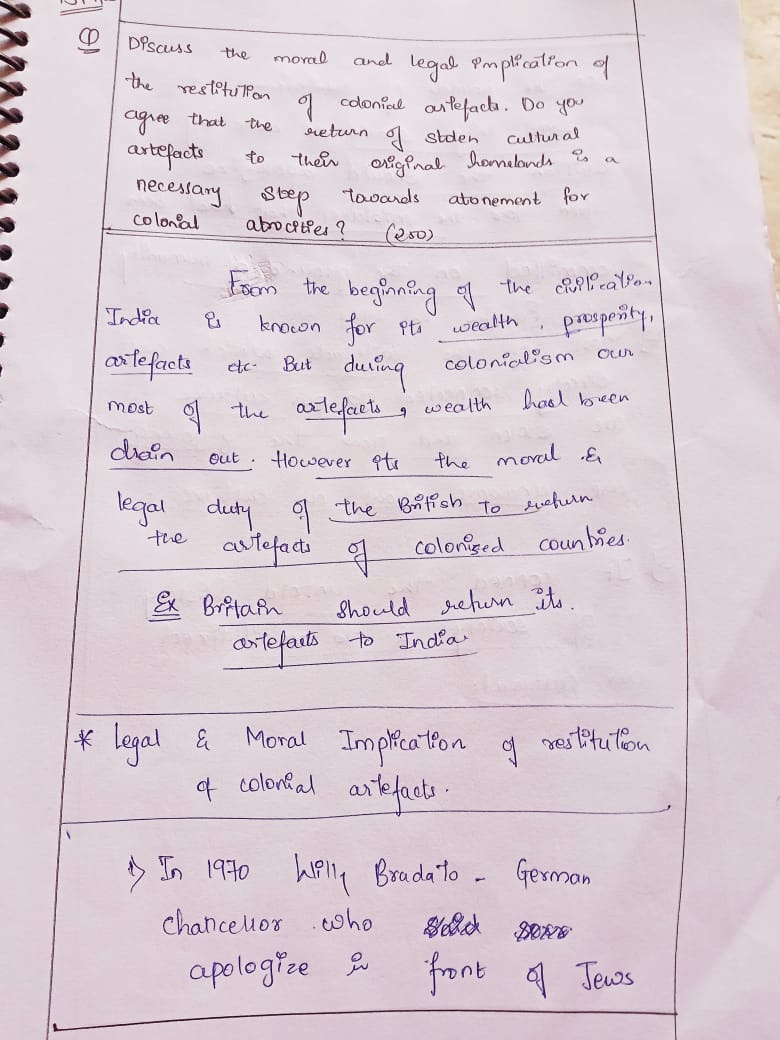 Q Discuss the moral and legal implication of
the restitution of colonial artefacts. Do you
agree that the return of stolen cultural
artefacts to their original homelands is a
necessary step towards atonement for
colonial atrocities? (250)
From the beginning of the civilication
India is known for its wealth, prosperity,
artefacts etc. But during colonialism our
most of the artefacts, wealth had been
drain out. However its the moral &
legal duty of the British to return
the artefacts of colonised countries.
Ex Britain should return its.
artefacts to India
* Legal & Moral Implication of restitution
of colonial artefacts.
1) In 1970 Willy Bradato - German
chancellor who
apologize in front of Jews